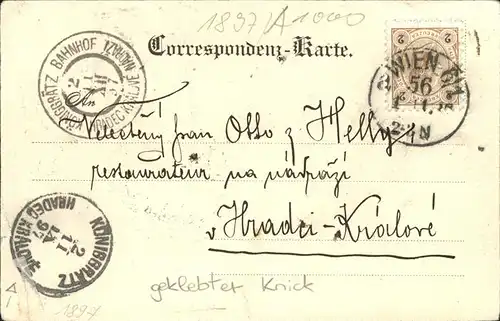 1897/A1000
Correspondenz-Karte.
KÖNIGGRÄTZ BAHNHOF
HRADEC KRÁLOVÉ NÁDRAŽÍ
WIEN 6/1
56
2
2
An
Velectěný pan Otto z Helly
restaurateur na nádraží
v Hradci-Králové
KÖNIGGRATZ
HRADEC KRÁLOVÉ
2
11
97
geklebter Knick
1897